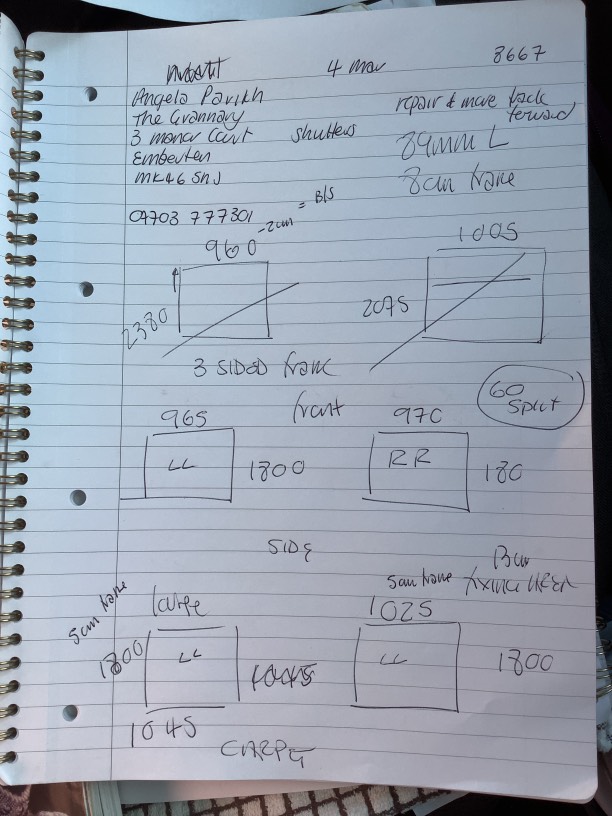 4 Mar 8667
Angela Parikh
The Grannary
3 manor Court shutters
Emberton
MK46 5NJ
repair & move track
forward
89mm L
8cm frame
07703 777301 = B/S
-2cm
960
2380
1005
2075
3 SIDED frame
60
split
front
965
LL
1800
970
RR
180
SIDE
5cm frame
large
1800
LL
1045
1045
5cm frame
1025
LL
fixing
1800